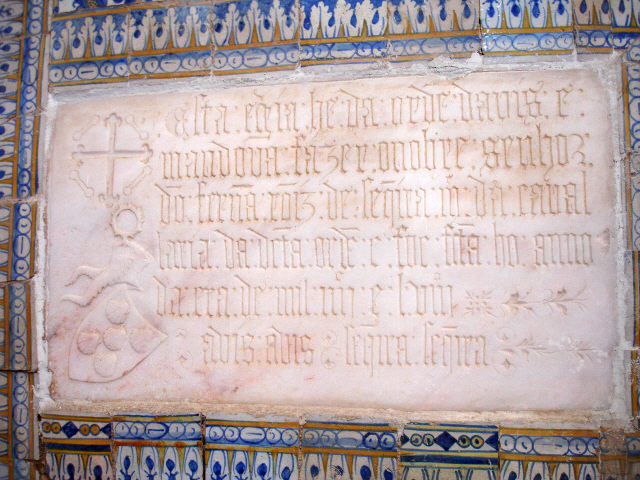 esta : egria : he : da : ordē : davis : e :
mandoua : fazer : o nobre : senhor
dō : fernã : roiz : de : seqira : m : da : caval
laria : da : dcta : ordē : e : foe : fcta : ho : anno
da : era : de : mil : iiii : e : lviii
: avis : avis : seqira : seqira